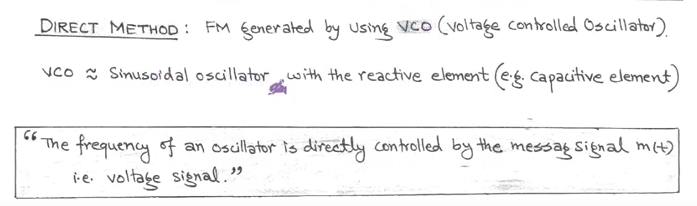 DIRECT METHOD : FM generated by using VCO (voltage controlled Oscillator).
VCO ≈ Sinusoidal oscillator with the reactive element (e.g. capacitive element)
“The frequency of an oscillator is directly controlled by the messag signal m(t)
i.e. voltage signal.”